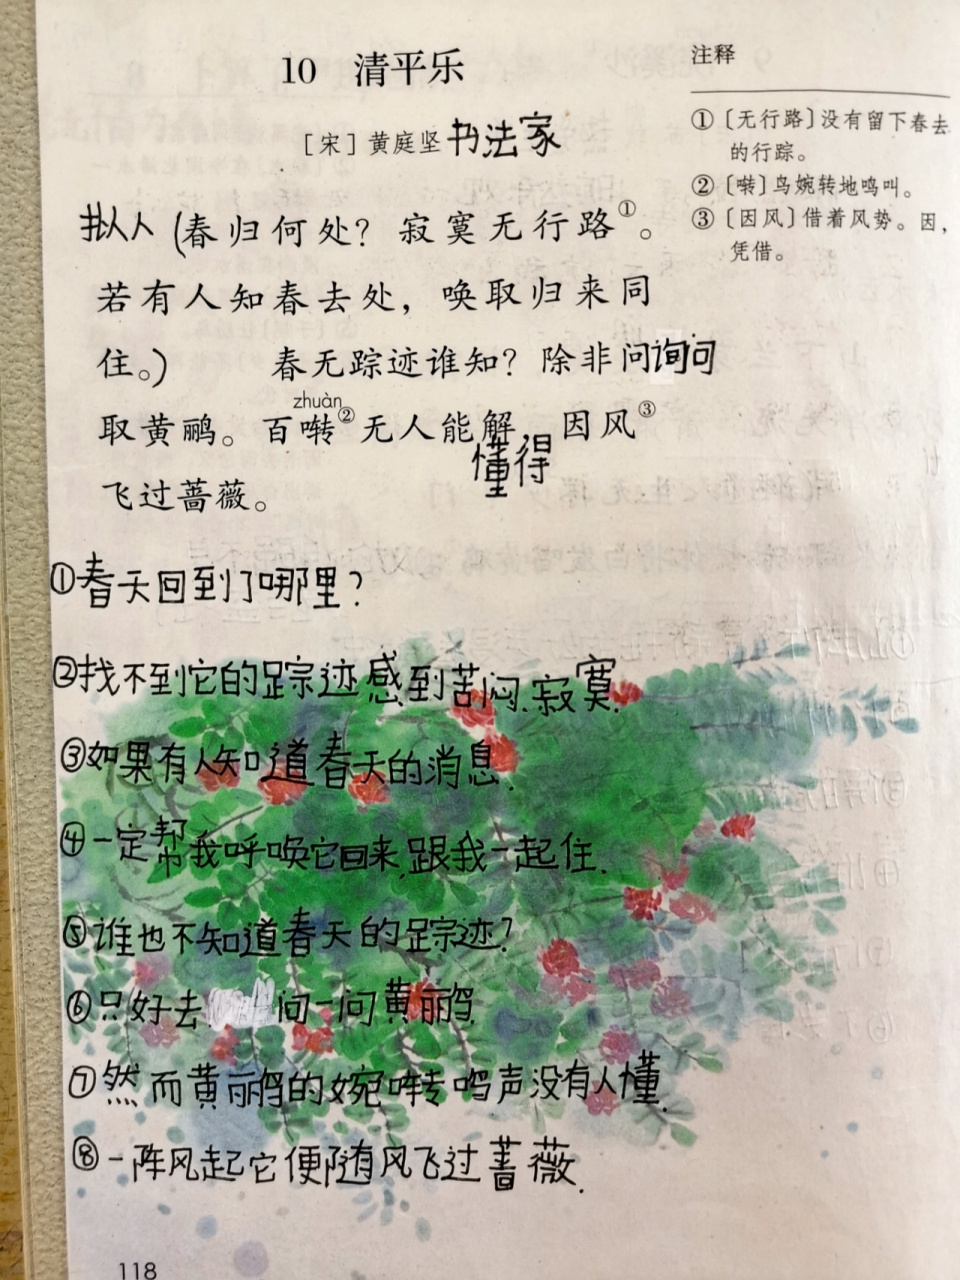 10 清平乐
[宋] 黄庭坚 书法家
拟人(春归何处？寂寞无行路①。
若有人知春去处，唤取归来同
住。) 春无踪迹谁知？除非问询问
zhuàn
取黄鹂。百啭②无人能解，因风③
懂得
飞过蔷薇。
注释
①〔无行路〕没有留下春去
的行踪。
②〔啭〕鸟婉转地鸣叫。
③〔因风〕借着风势。因，
凭借。
①春天回到了哪里？
②找不到它的踪迹感到苦闷.寂寞.
③如果有人知道春天的消息.
④一定帮我呼唤它回来,跟我一起住.
⑤谁也不知道春天的踪迹?
⑥只好去问一问黄鹂.
⑦然而黄鹂的婉啭鸣声没有人懂.
⑧一阵风起它便随风飞过蔷薇.
118